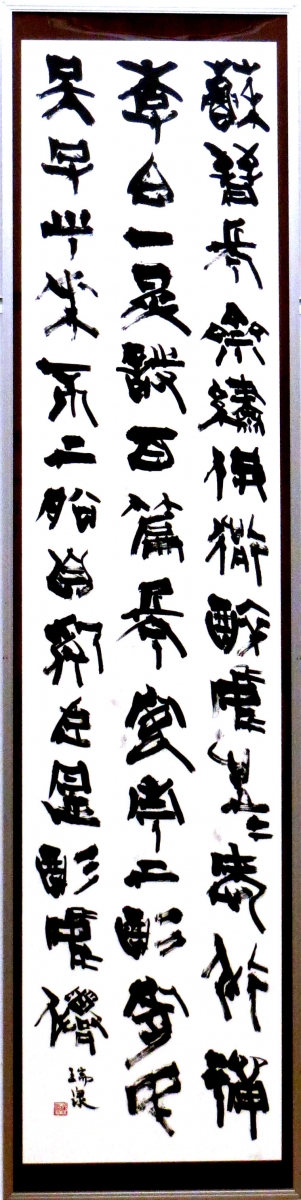 蘇晉長齋繡佛前醉中往々愛逃禪
李白一斗詩百篇長安市上酒家眠
天子呼來不上船自稱臣是酒中仙
瑞泉